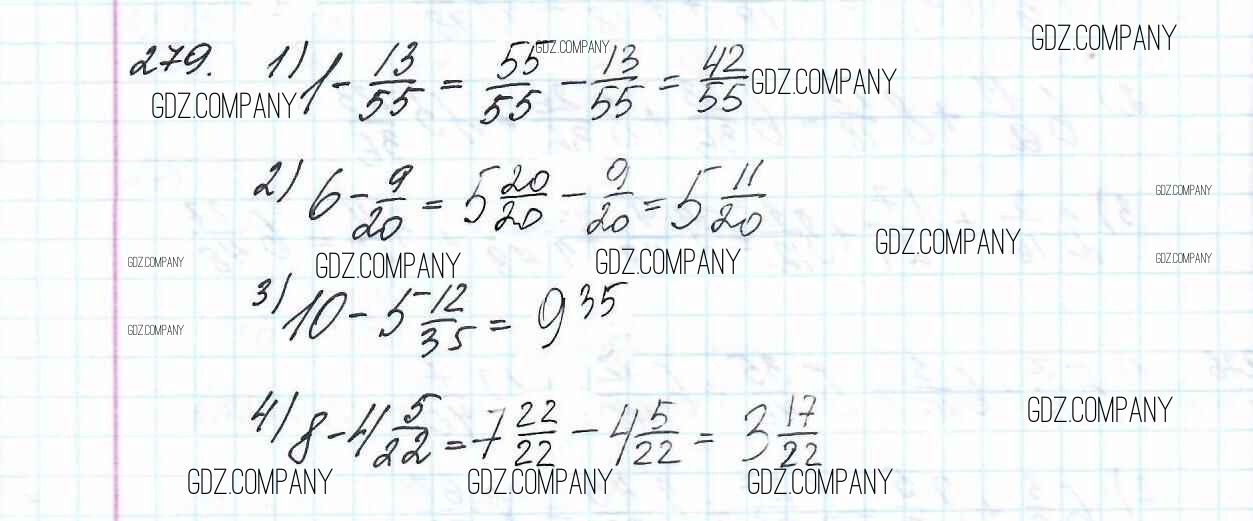 GDZ.COMPANY GDZ.COMPANY
279. 1) 1 - 13/55 = 55/55 - 13/55 = 42/55
GDZ.COMPANY GDZ.COMPANY
2) 6 - 9/20 = 5 20/20 - 9/20 = 5 11/20
GDZ.COMPANY
GDZ.COMPANY
GDZ.COMPANY GDZ.COMPANY GDZ.COMPANY GDZ.COMPANY
3) 10 - 5 12/35 = 9 35
GDZ.COMPANY
4) 8 - 4 5/22 = 7 22/22 - 4 5/22 = 3 17/22
GDZ.COMPANY
GDZ.COMPANY GDZ.COMPANY GDZ.COMPANY